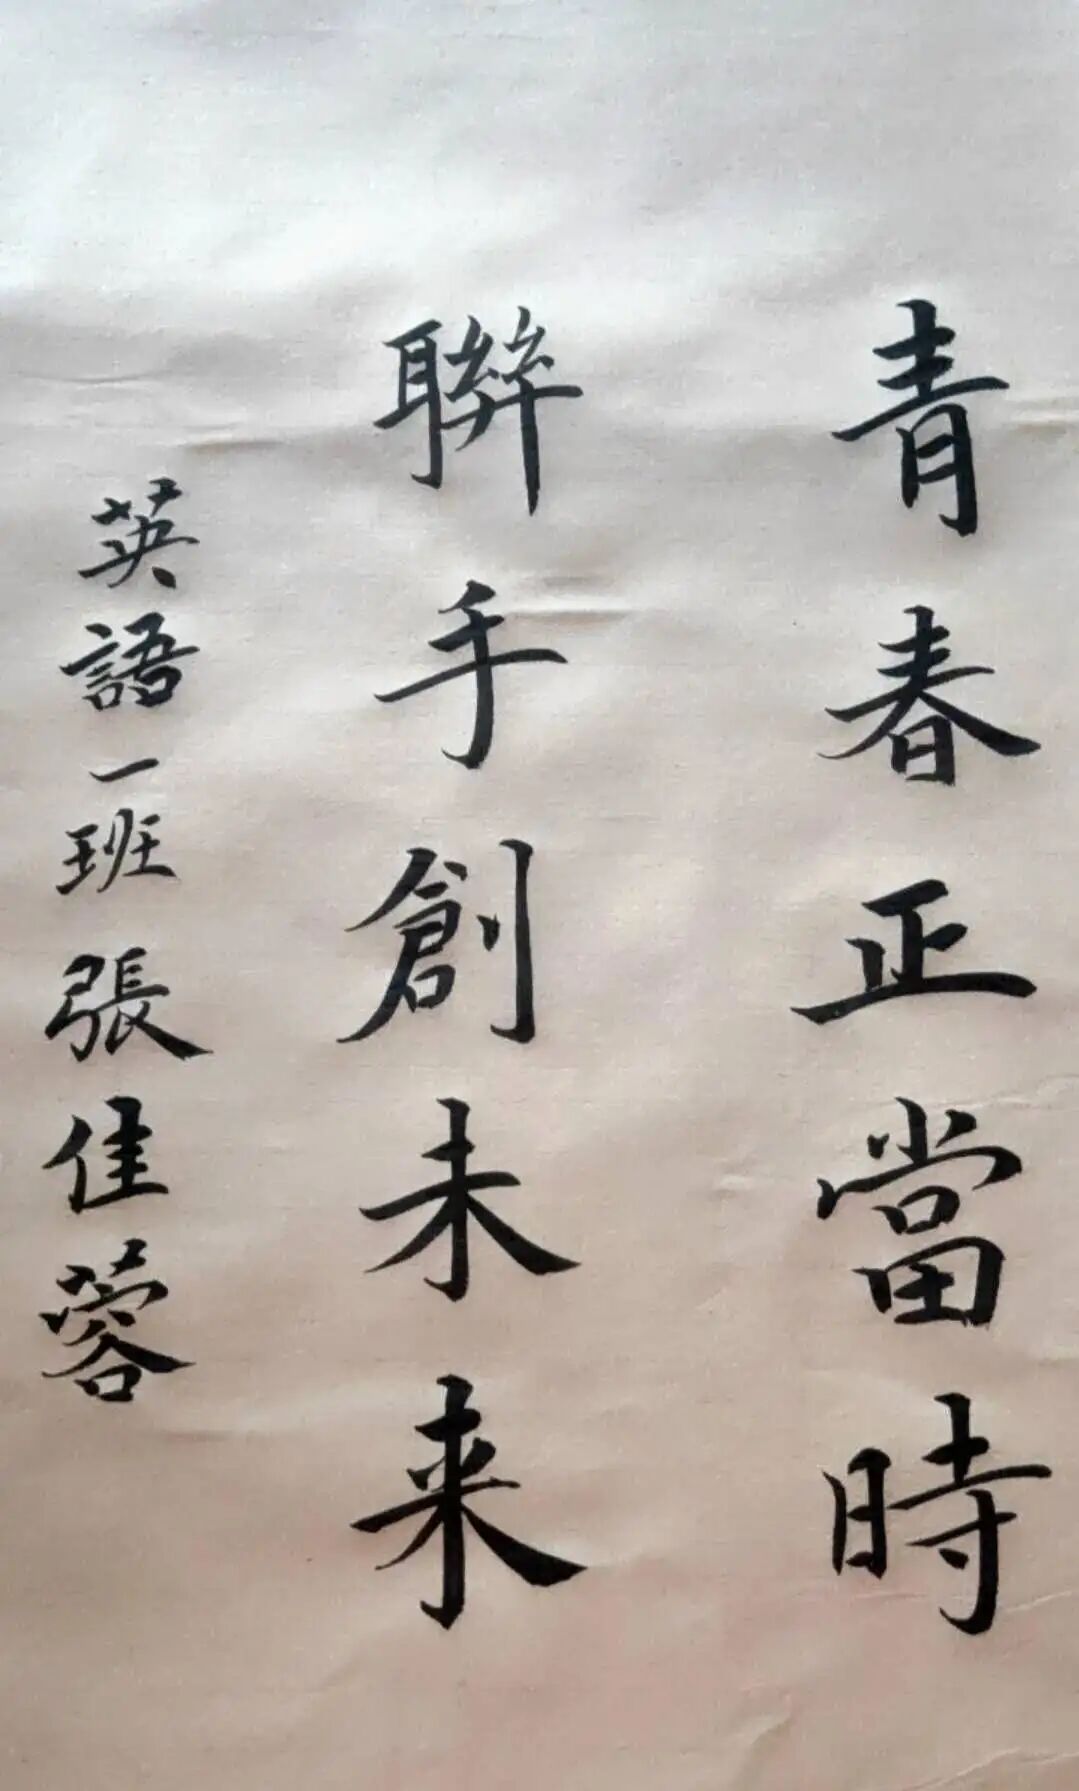 青春正當時
聯手創未来
英語一班張佳蓉